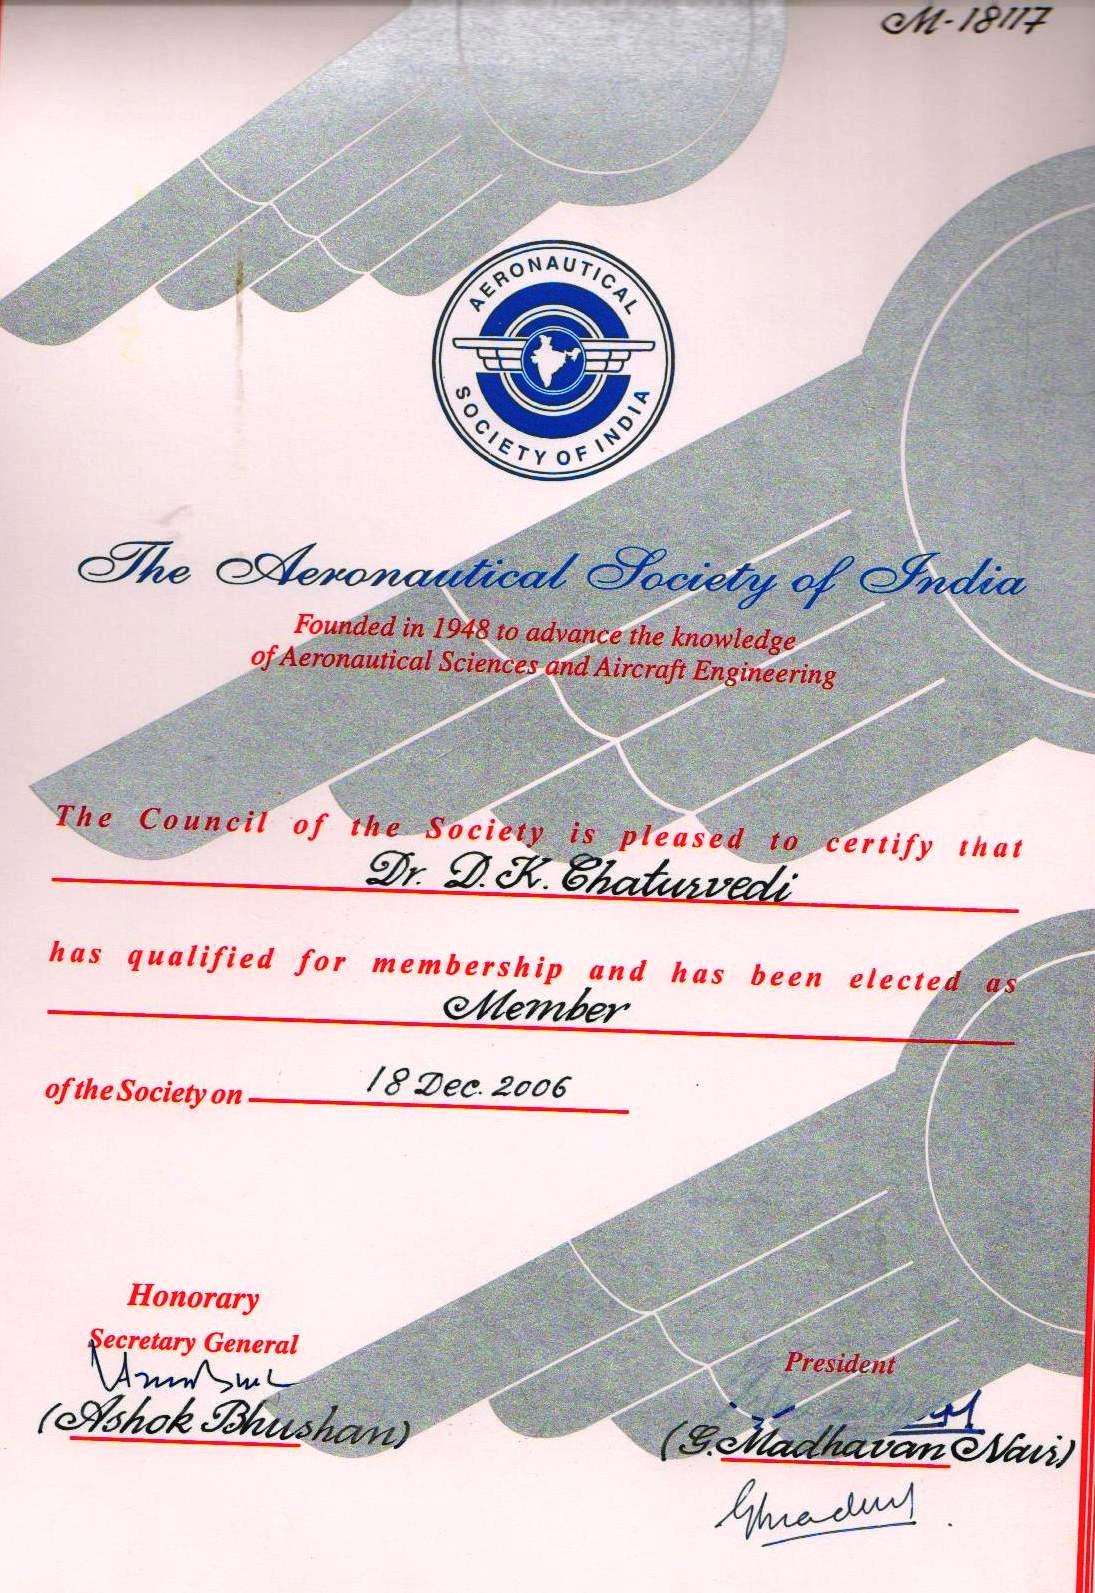 M-18117
AERONAUTICAL
SOCIETY OF INDIA
The Aeronautical Society of India
Founded in 1948 to advance the knowledge
of Aeronautical Sciences and Aircraft Engineering
The Council of the Society is pleased to certify that
Dr. D.K. Chaturvedi
has qualified for membership and has been elected as
Member
of the Society on 18 Dec. 2006
Honorary
Secretary General
(Ashok Bhushan)
President
(G. Madhavan Nair)